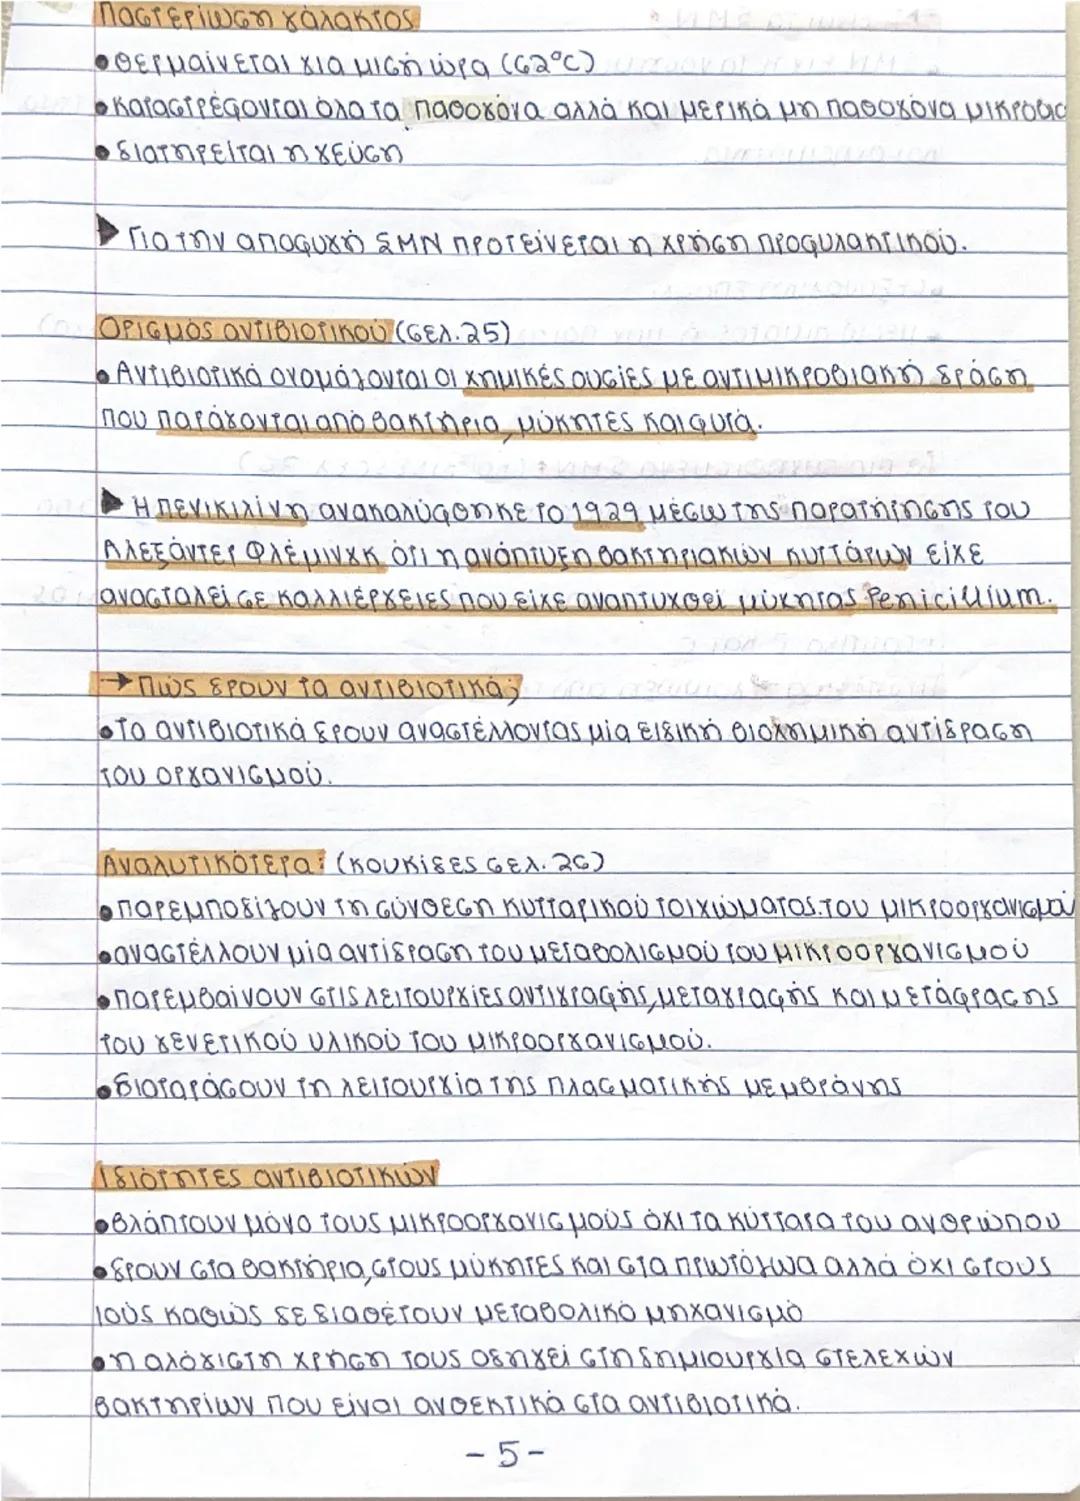 Παστερίωση γάλακτος
• θερμαίνεται για μισή ώρα (62°C)
• καταστρέφονται όλα τα παθογόνα αλλά και μερικά μη παθογόνα μικρόβια
• διατηρείται η γεύση
▶ Για την αποφυγή ΣΜΝ προτείνεται η χρήση προφυλακτικού.
Ορισμός αντιβιοτικού (σελ. 25)
• Αντιβιοτικά ονομάζονται οι χημικές ουσίες με αντιμικροβιακή δράση
που παράγονται από βακτήρια, μύκητες και φυτά.
▶ Η πενικιλίνη ανακαλύφθηκε το 1929 μέσω της παρατήρησης του
Αλεξάντερ Φλέμινγκ ότι η ανάπτυξη βακτηριακών κυττάρων είχε
ανασταλεί σε καλλιέργειες που είχε αναπτυχθεί μύκητας Penicillium.
→ Πώς δρουν τα αντιβιοτικά;
• Τα αντιβιοτικά δρουν αναστέλλοντας μία ειδική βιοχημική αντίδραση
του οργανισμού.
Αναλυτικότερα: (κουκίδες σελ. 26)
• παρεμποδίζουν τη σύνθεση κυτταρικού τοιχώματος του μικροοργανισμού
• αναστέλλουν μία αντίδραση του μεταβολισμού του μικροοργανισμού
• παρεμβαίνουν στις λειτουργίες αντιγραφής, μεταγραφής και μετάφρασης
του γενετικού υλικού του μικροοργανισμού.
• διαταράσουν τη λειτουργία της πλασματικής μεμβράνης
Ιδιότητες αντιβιοτικών
• βλάπτουν μόνο τους μικροοργανισμούς όχι τα κύτταρα του ανθρώπου
• δρουν στα βακτήρια, στους μύκητες και στα πρωτόζωα αλλά όχι στους
ιούς καθώς δε διαθέτουν μεταβολικό μηχανισμό
• η αλόγιστη χρήση τους οδηγεί στη δημιουργία στελεχών
βακτηρίων που είναι ανθεκτικά στα αντιβιοτικά.
- 5 -